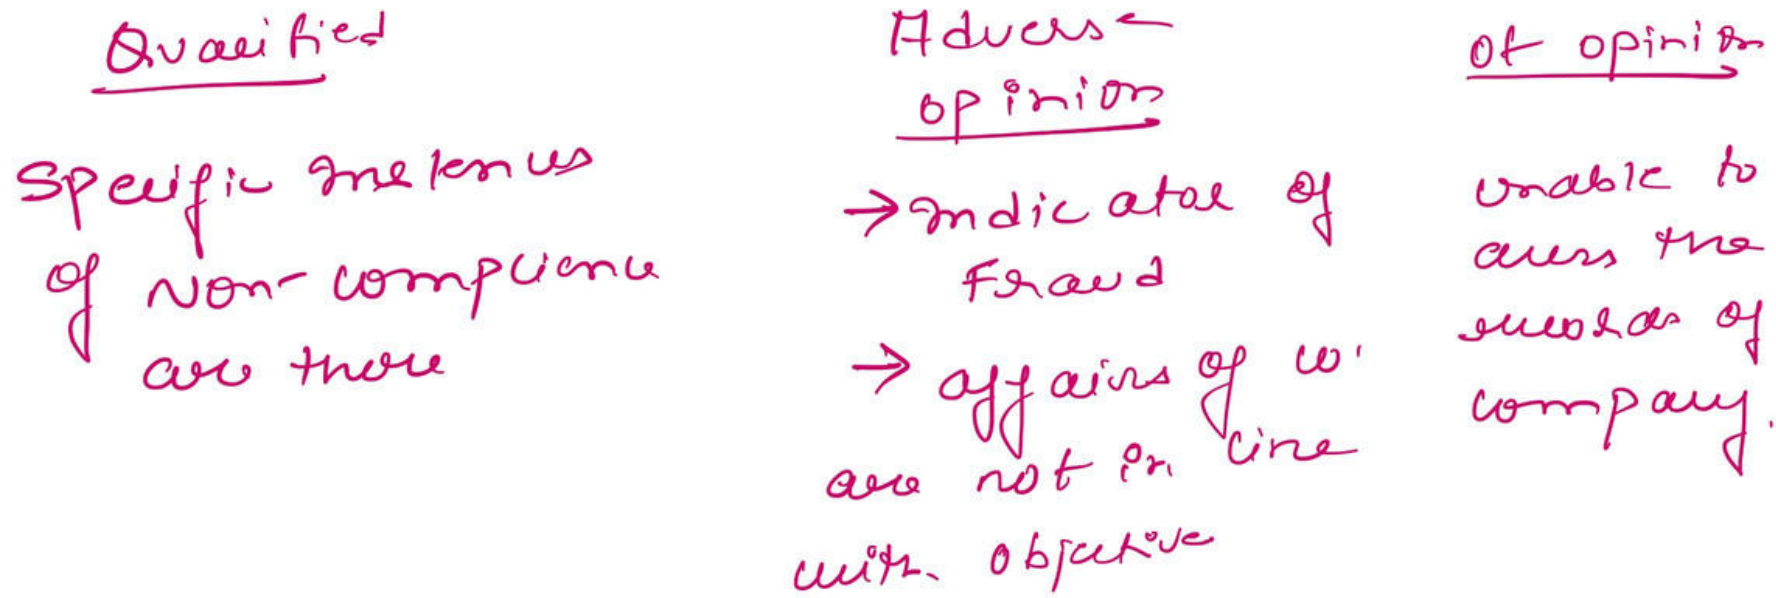 Qualified
Specific Instances
of Non-compliance
are there
Adverse
opinion
→ Indicator of
Fraud
→ affairs of co.
are not in line
with objective
of opinion
unable to
access the
records of
company.